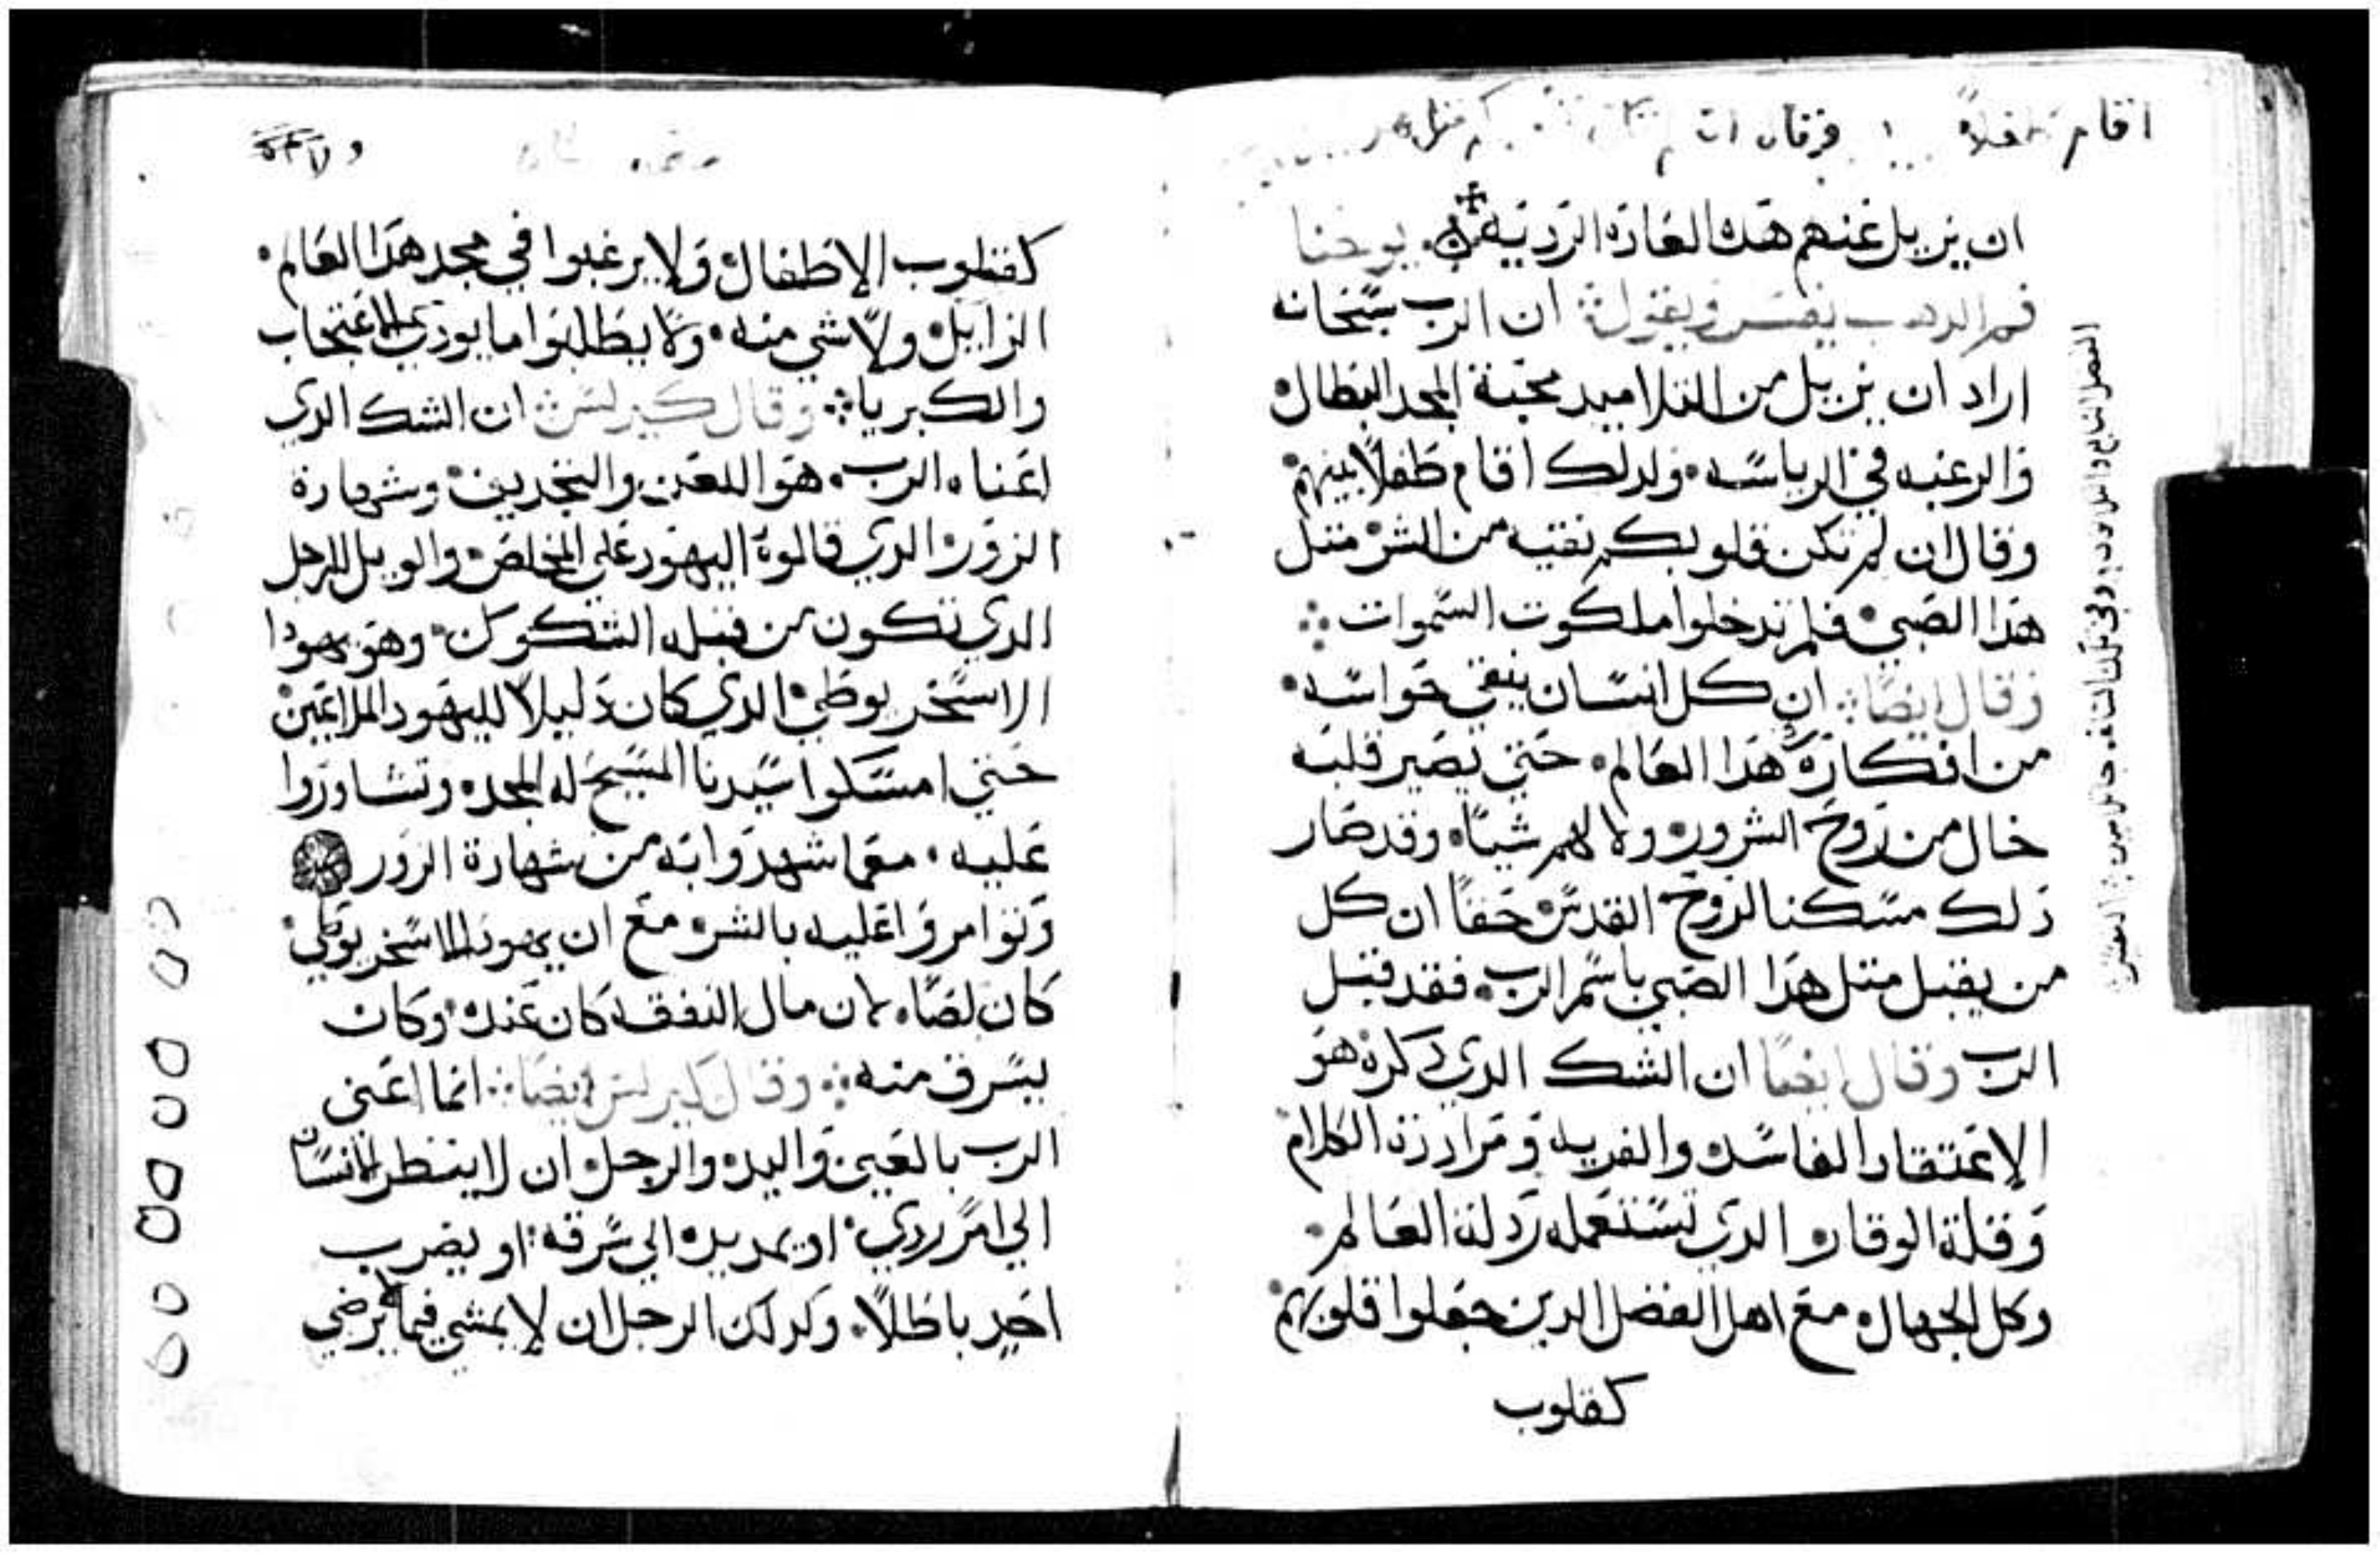 اقام طفلاً
ان يزيل عنهم هده العاده الرديه يوحنا
فم الدهب يفسر ويقول ان الرب سبحانه
اراد ان يزيل من التلاميد محبة المجد البطال
والرغبه في الرياسه ولدلك اقام طفلاً بينهم
وقال ان لم تكن قلوبكم نقيه من الشر متل
هدا الصبي فلم تدخلوا ملكوت السموات
وقال ايضًا ان كل انسان ينقي حواسه
من افكار هدا العالم حتي يصير قلبه
خال من روح الشرور ولا لهم شياً وقد صار
دلك مسكنا لروح القدس حقاً ان كل
من يقبل متل هدا الصبي باسم الرب فقد قبل
الرب وقال ايضًا ان الشك الدي دكره هو
الاعتقاد الفاسد والفريه ومراددة الكلام
وقلة الوقار الدي تستعمله ردلة العالم
وكل الجهال مع اهل الفضل الدين جعلوا قلوبهم
كقلوب
كقلوب الاطفال ولا يرغبوا في مجد هدا العالم
الزايل ولا شي منه ولا يطلبوا ما يودي الاعتجاب
والكبريا وقال كيرلس ان الشك الدي
اعناه الرب هو اللعن والتجديف وشهادة
الزور الدي قالوه اليهود علي المخلص والويل للرجل
الدي تكون من قبله الشكوك وهو يهودا
الاسخريوطي الدي كان دليلاً لليهود الملاعين
حتي امسكوا سيدنا المسيح له المجد وتشاوروا
عليه معما شهدوا به من شهادة الزور
وتوامروا عليه بالشر مع ان يهودا الاسخريوطي
كان لصًا لان مال النفقه كان عنده وكان
يسرق منه وقال كيرلس ايضًا انما اعني
الرب بالعين واليد والرجل ان لا ينظر الانسان
الي امر ردي او يمد يده الي سرقه او يضرب
احد باطلاً وكدلك الرجل ان لا يمشي فيما لا يرضي